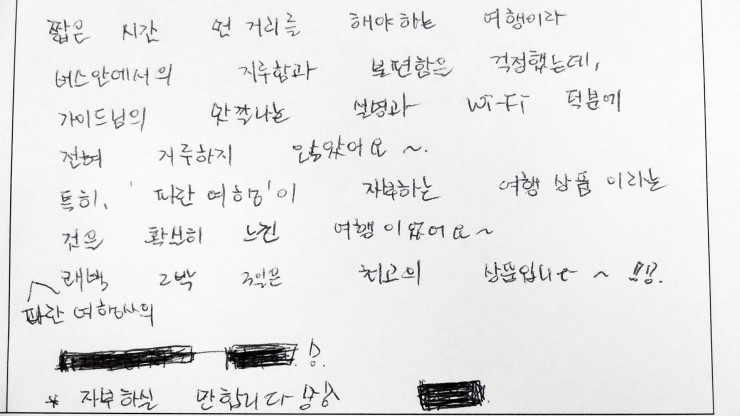 짧은 시간 먼 거리를 해야하는 여행이라
버스안에서의 지루함과 불편함은 걱정했는데,
가이드님의 맛깔나는 설명과 Wi-Fi 덕분에
전혀 지루하지 않았어요~.
특히, '파란여행'이 자부하는 여행 상품이라는
것을 확실히 느낀 여행이었어요~
태백 2박 3일은 최고의 상품입니다~!!!.
파란여행사의
!.
* 자부하실 만합니다!!